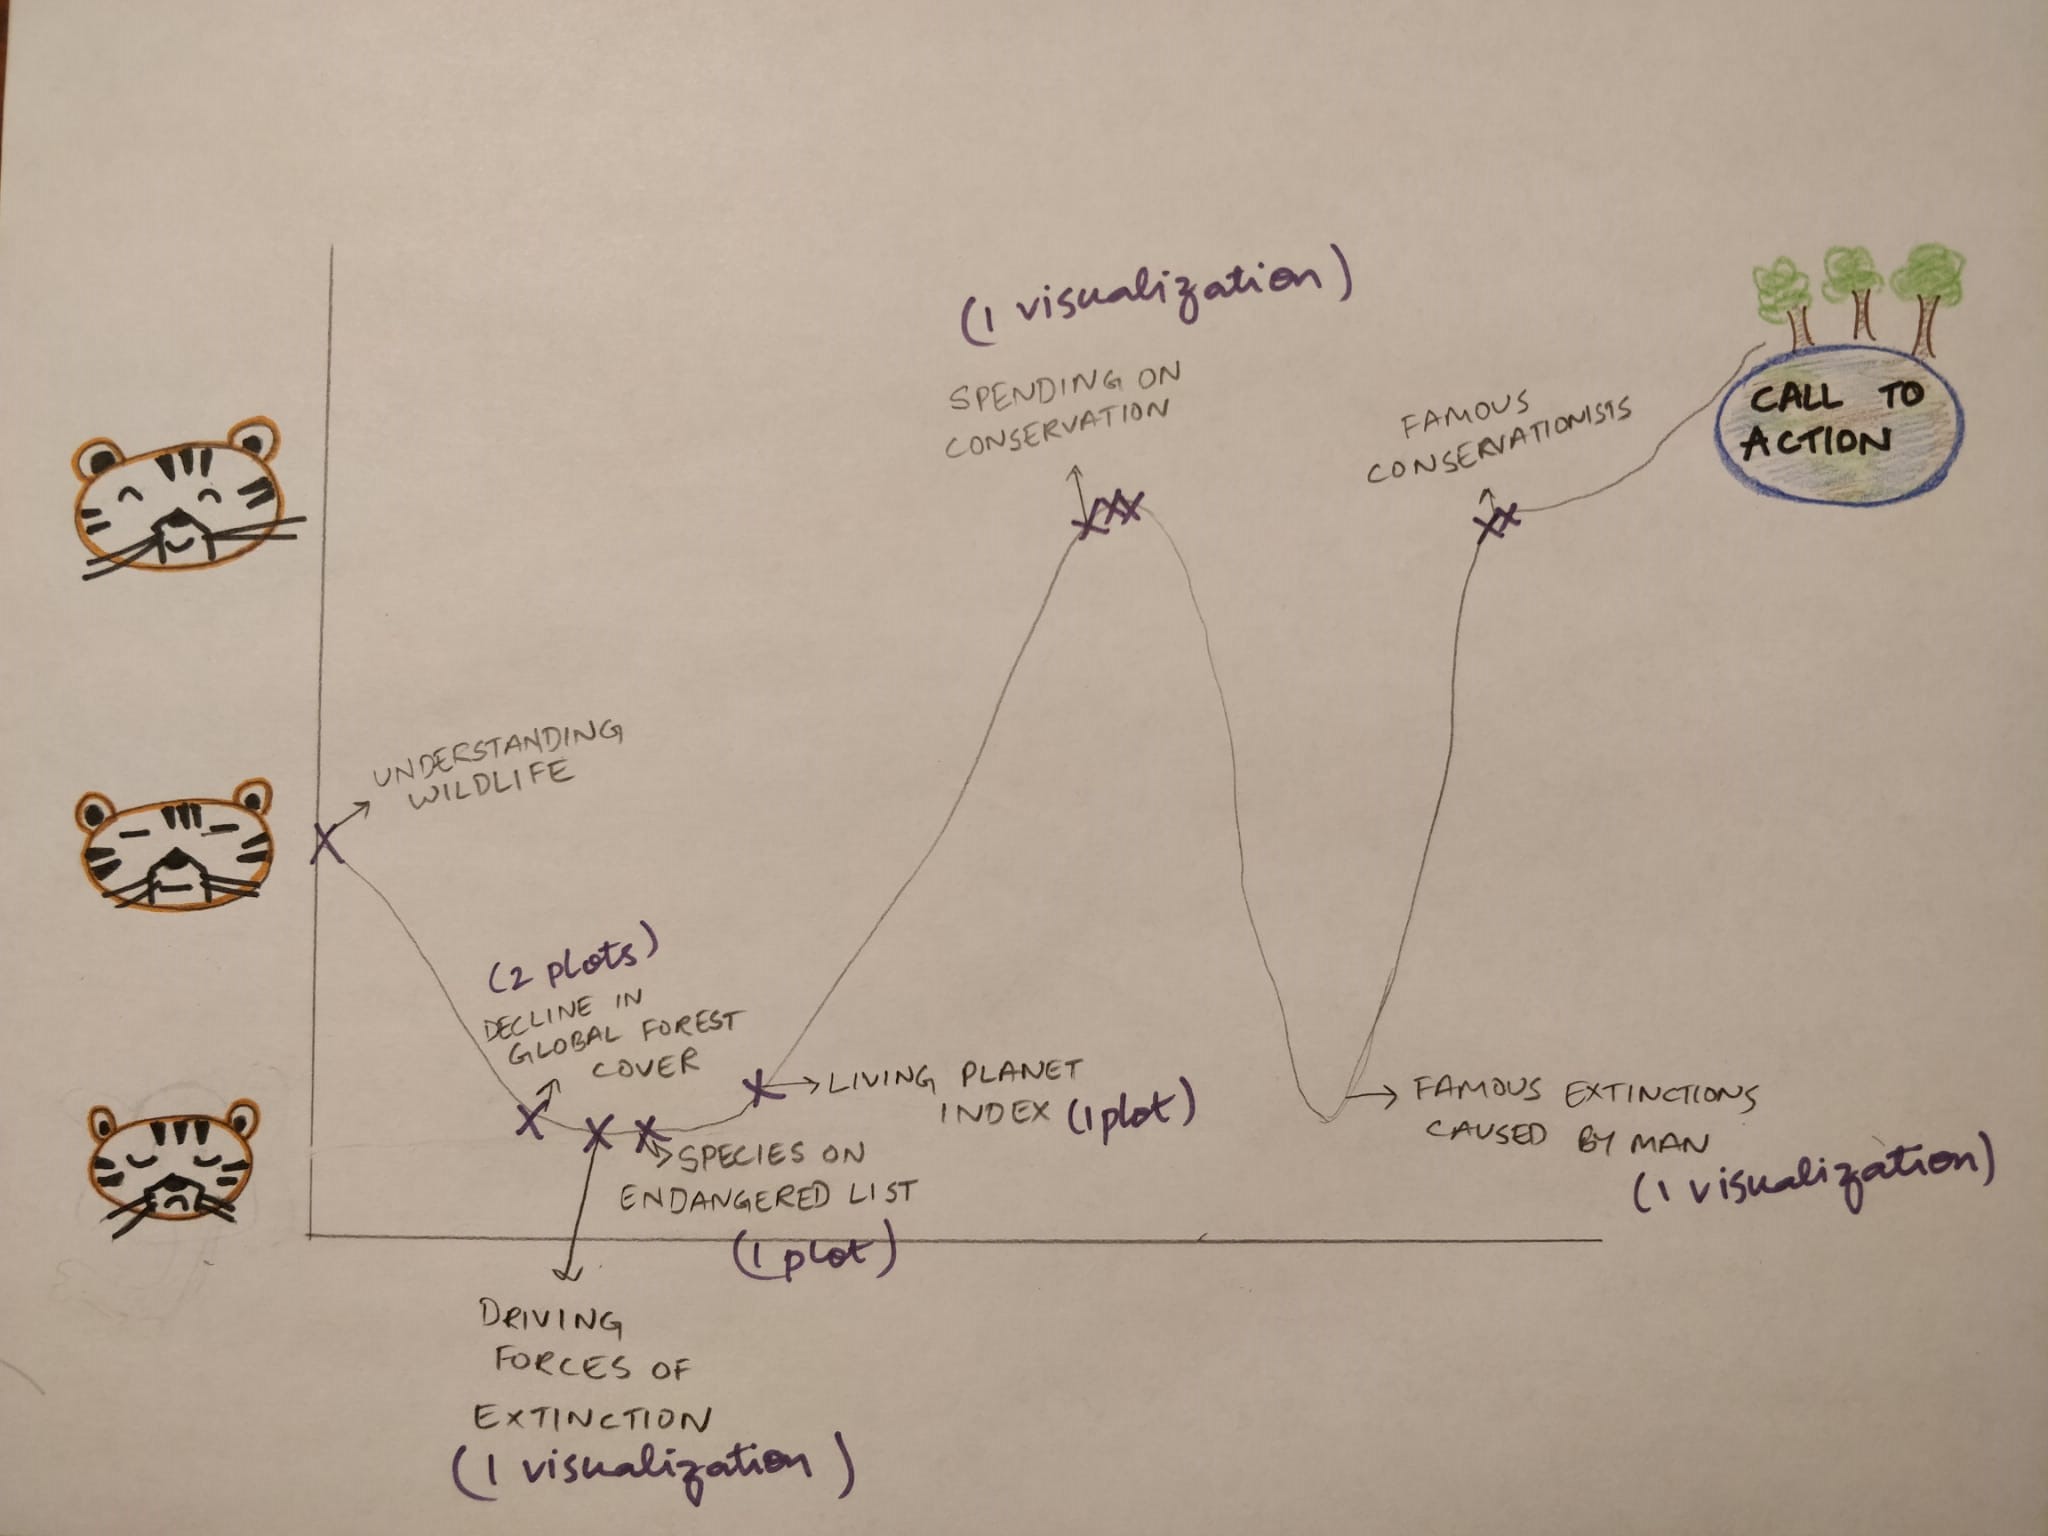 (1 visualization)
SPENDING ON
CONSERVATION
FAMOUS
CONSERVATIONISTS
CALL TO
ACTION
UNDERSTANDING
WILDLIFE
(2 plots)
DECLINE IN
GLOBAL FOREST
COVER
LIVING PLANET
INDEX (1 plot)
SPECIES ON
ENDANGERED LIST
(1 plot)
FAMOUS EXTINCTIONS
CAUSED BY MAN
(1 visualization)
DRIVING
FORCES OF
EXTINCTION
(1 visualization)